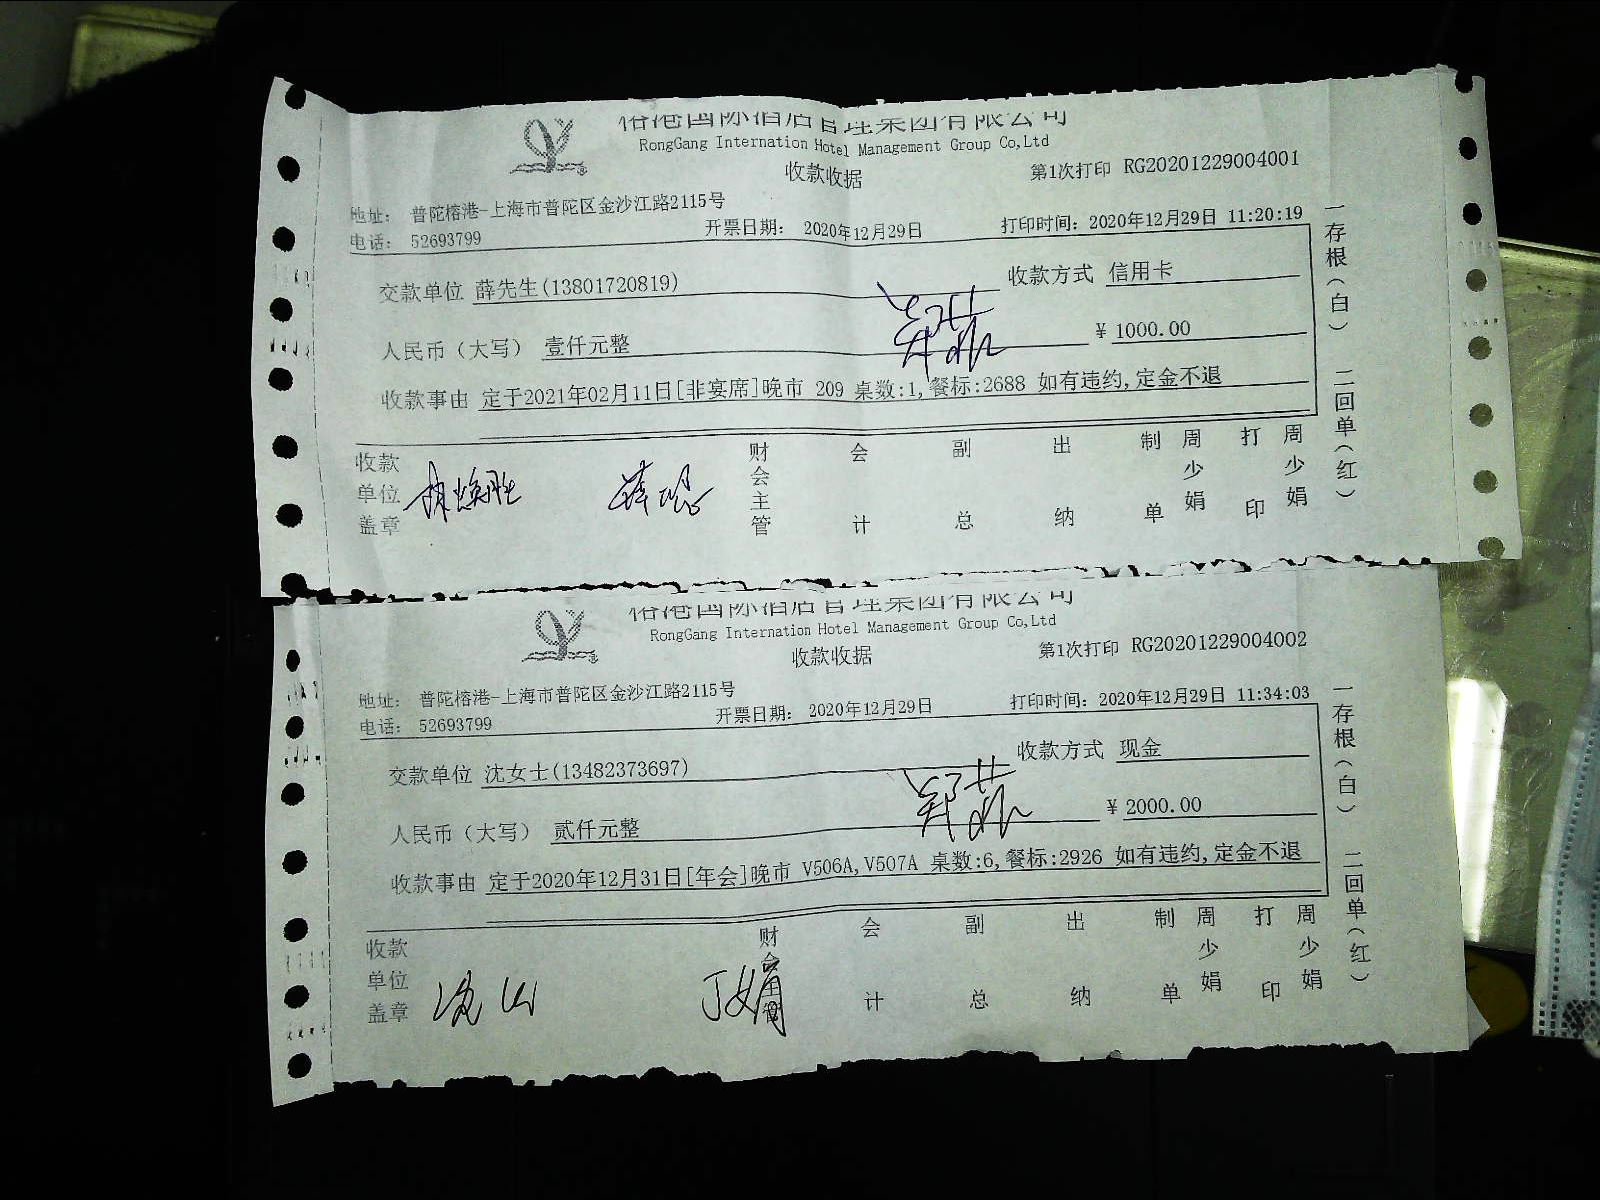 榕港国际酒店管理集团有限公司
RongGang Internation Hotel Management Group Co,Ltd
收款收据
第1次打印 RG20201229004001
地址: 普陀榕港-上海市普陀区金沙江路2115号
电话: 52693799
开票日期: 2020年12月29日
打印时间: 2020年12月29日 11:20:19
交款单位 薛先生(13801720819)
收款方式 信用卡
人民币(大写) 壹仟元整
¥ 1000.00
收款事由 定于2021年02月11日[非宴席]晚市 209 桌数:1,餐标:2688 如有违约,定金不退
收款单位盖章
财会主管
会计
副总
出纳
制单
周少娟
打印
周少娟
一存根(白) 二回单(红)
榕港国际酒店管理集团有限公司
RongGang Internation Hotel Management Group Co,Ltd
收款收据
第1次打印 RG20201229004002
地址: 普陀榕港-上海市普陀区金沙江路2115号
电话: 52693799
开票日期: 2020年12月29日
打印时间: 2020年12月29日 11:34:03
交款单位 沈女士(13482373697)
收款方式 现金
人民币(大写) 贰仟元整
¥ 2000.00
收款事由 定于2020年12月31日[年会]晚市 V506A,V507A 桌数:6,餐标:2926 如有违约,定金不退
收款单位盖章
丁娟
财会主管
会计
副总
出纳
制单
周少娟
打印
周少娟
一存根(白) 二回单(红)